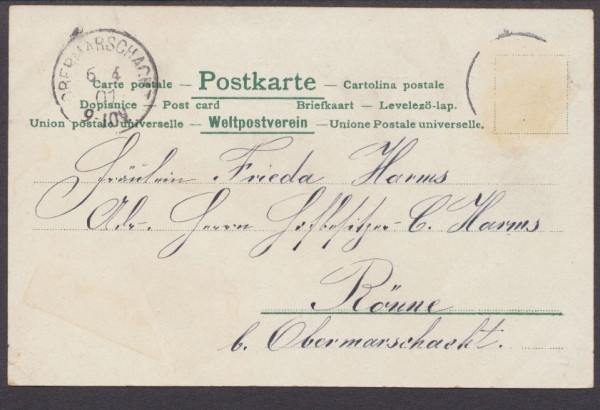 OBERMARSCHACHT
6 4
01
9-10V
Carte postale – Postkarte – Cartolina postale
Dopisnice – Post card Briefkaart – Levelezö-lap.
Union postale universelle – Weltpostverein – Unione Postale universelle.
Fräulein Frieda Harms
Adr. Herrn Hofbesitzer C. Harms
Rönne
b. Obermarschacht.